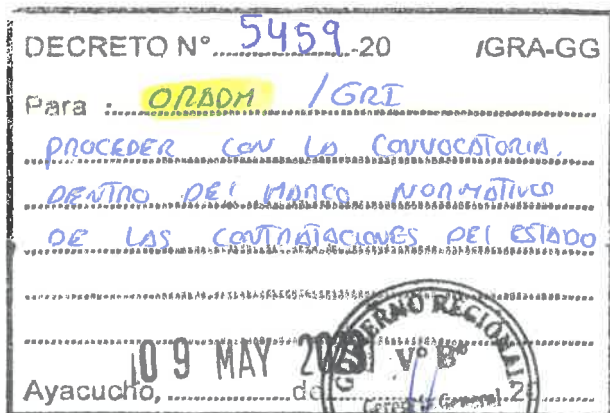 DECRETO N° 5459-20 /GRA-GG
Para : ORADM / GRI
PROCEDER CON LA CONVOCATORIA,
DENTRO DEL MARCO NORMATIVO
DE LAS CONTRATACIONES DEL ESTADO
09 MAY
GOBIERNO REGIONAL
V° B°
Ayacucho, de 20
Gerencia General